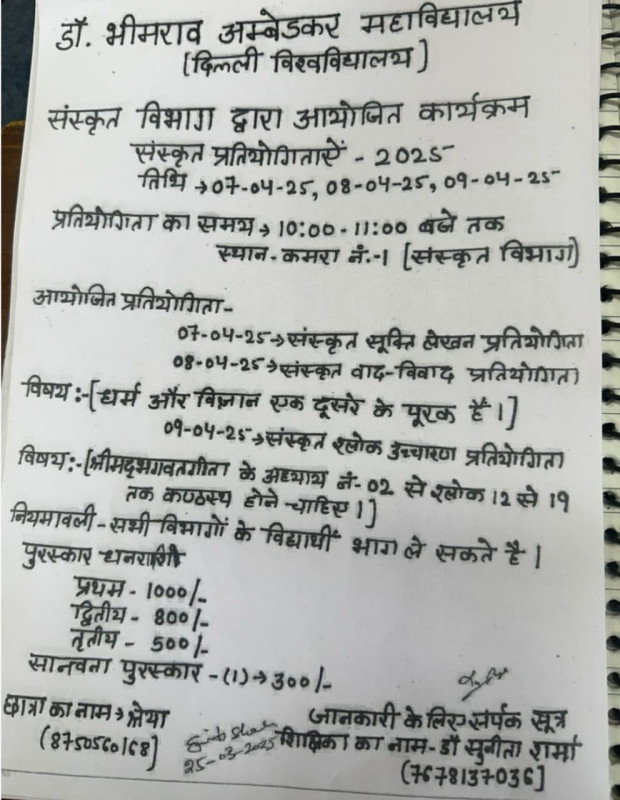 डॉ. भीमराव अम्बेडकर महाविद्यालय
[दिल्ली विश्वविद्यालय]
संस्कृत विभाग द्वारा आयोजित कार्यक्रम
संस्कृत प्रतियोगिताऐं - 2025
तिथि → 07-04-25, 08-04-25, 09-04-25
प्रतियोगिता का समय → 10:00 - 11:00 बजे तक
स्थान - कमरा नं.-1 [संस्कृत विभाग]
आयोजित प्रतियोगिता -
07-04-25 → संस्कृत सूक्ति लेखन प्रतियोगिता
08-04-25 → संस्कृत वाद-विवाद प्रतियोगिता
विषय :- [धर्म और विज्ञान एक दूसरे के पूरक हैं।]
09-04-25 → संस्कृत श्लोक उच्चारण प्रतियोगिता
विषय :- [श्रीमद्भगवतगीता के अध्याय नं- 02 से श्लोक 12 से 19
तक कण्ठस्थ होने चाहिए।]
नियमावली - सभी विभागों के विद्यार्थी भाग ले सकते है।
पुरस्कार धनराशि
प्रथम - 1000/-
द्वितीय - 800/-
तृतीय - 500/-
सानवना पुरस्कार - (1) → 300/-
छात्रा का नाम → श्रेया
(8750560168]
25-03-2025
जानकारी के लिए संर्पक सूत्र
शिक्षिका का नाम - डॉ सुनीता शर्मा
(7678137036]